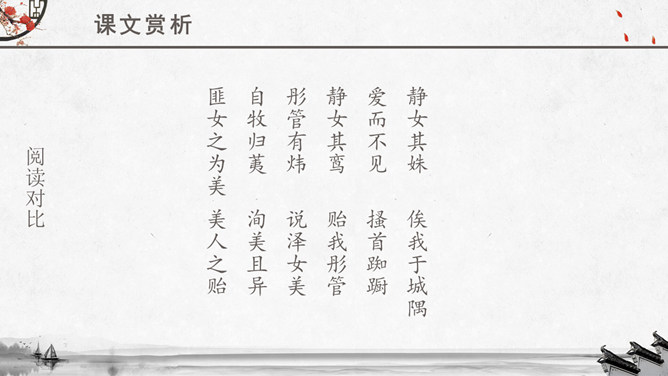 课文赏析
静女其姝 俟我于城隅
爱而不见 搔首踟蹰
静女其鸾 贻我彤管
彤管有炜 说泽女美
自牧归荑 洵美且异
匪女之为美 美人之贻
阅读对比